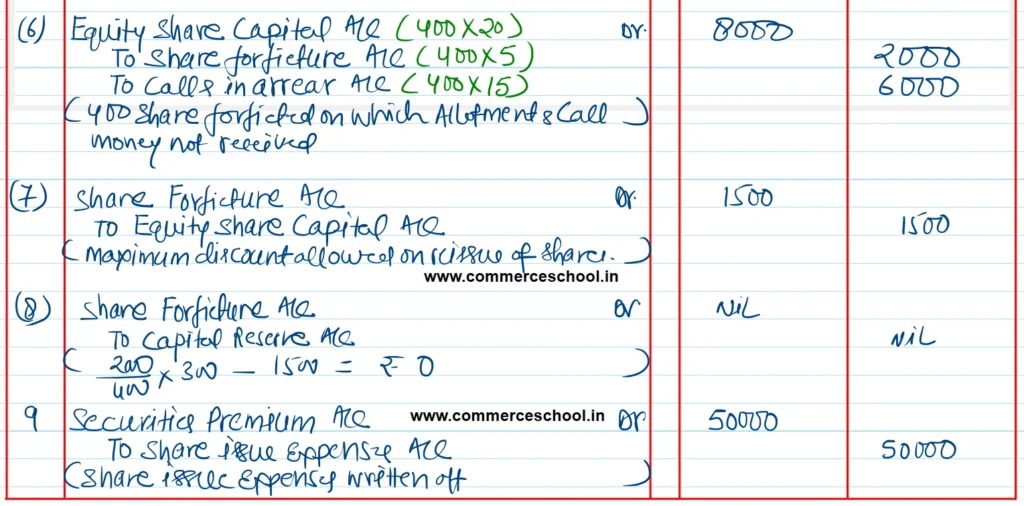 (6) Equity Share Capital A/C (400X20) Dr. 8000
To Share forficture A/C (400X5) 2000
To Calls in arrear A/C (400X15) 6000
(400 Share forficted on which Allotment & Call)
money not received
(7) Share Forficture A/C Dr. 1500
To Equity Share Capital A/C 1500
(Mapimum discount allowed on reissue of shares.)
www.commerceschool.in
(8) Share Forficture A/C Dr NiL
To Capital Reserve A/C NiL
(2000/400 x 300 - 1500 = ₹ 0)
9 Securities Premium A/C www.commerceschool.in Dr 50000
To Share issue Expense A/C 50000
(Share issue Expenses written off)